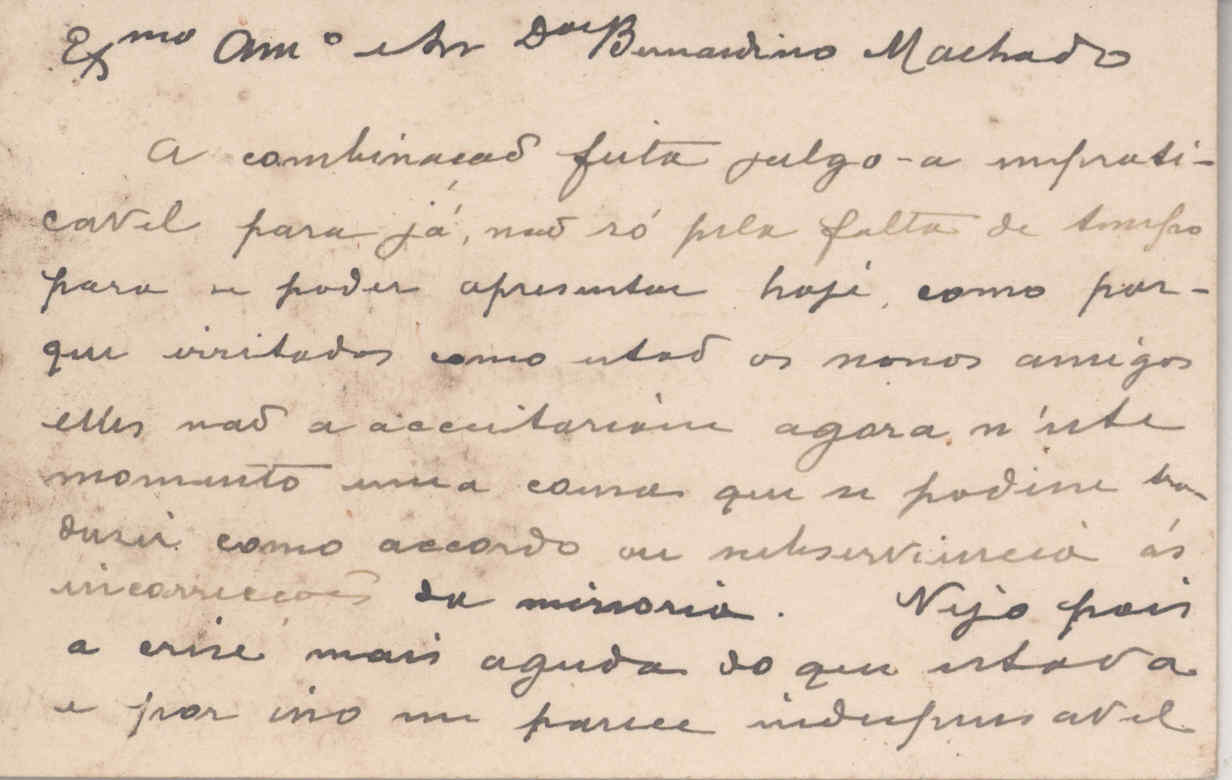 Exmo Amº e Snr Dor Bernardino Machado
A combinacaõ feita julgo-a imprati-
cavel para já, naõ só pela falta de tempo
para se poder apresentar hoje, como por-
que irritados como estaõ os nossos amigos
elles naõ a acceitariam agora n'este
momento uma cousa que se podesse tra
dusir como accordo ou subserviencia ás
incorrecções da minoria. Vejo pois
a crise mais aguda do que estava
e por isso me parece indespensavel